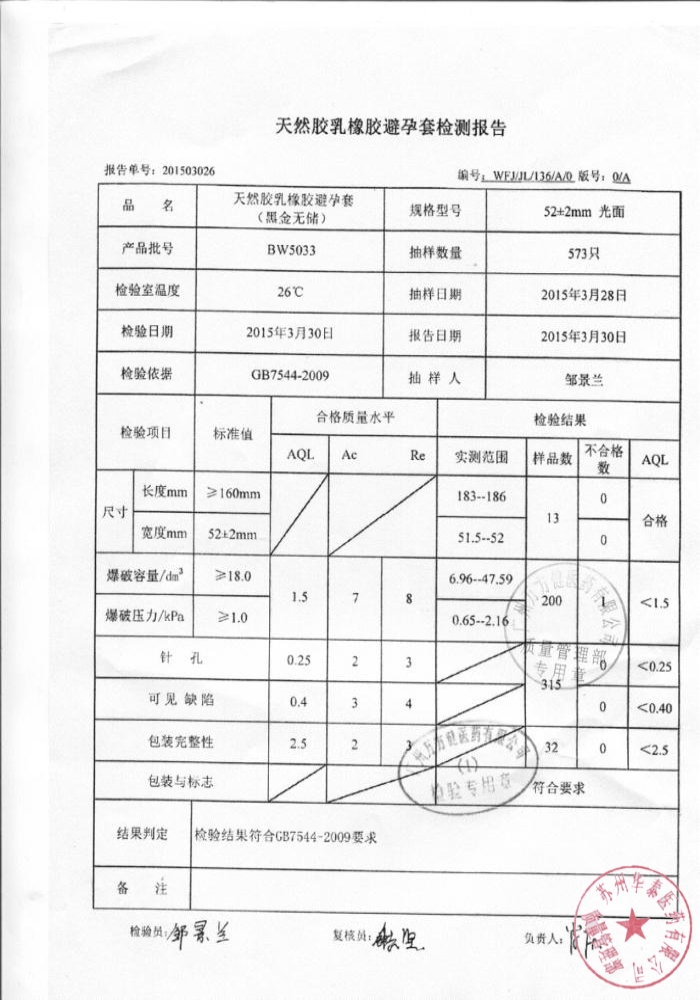 天然胶乳橡胶避孕套检测报告
报告单号：201503026
编号：WFJ/JL/136/A/0 版号：0/A
品 名 天然胶乳橡胶避孕套 规格型号 52±2mm 光面
（黑金无储）
产品批号 BW5033 抽样数量 573只
检验室温度 26℃ 抽样日期 2015年3月28日
检验日期 2015年3月30日 报告日期 2015年3月30日
检验依据 GB7544-2009 抽 样 人 邹景兰
检验项目 标准值 合格质量水平 检验结果
AQL Ac Re 实测范围 样品数 不合格数 AQL
尺寸 长度mm ≥160mm 183--186 13 0 合格
宽度mm 52±2mm 51.5--52 0
爆破容量/dm³ ≥18.0 1.5 7 8 6.96--47.59 200 1 <1.5
爆破压力/kPa ≥1.0 0.65--2.16
针 孔 0.25 2 3 315 0 <0.25
可见缺陷 0.4 3 4 0 <0.40
包装完整性 2.5 2 3 32 0 <2.5
包装与标志 符合要求
结果判定 检验结果符合GB7544-2009要求
备 注
检验员：邹景兰 复核员： 负责人：
广州万方健医药有限公司
质量管理部
专用章
(1)
检验专用章
苏州华泰医药有限公司